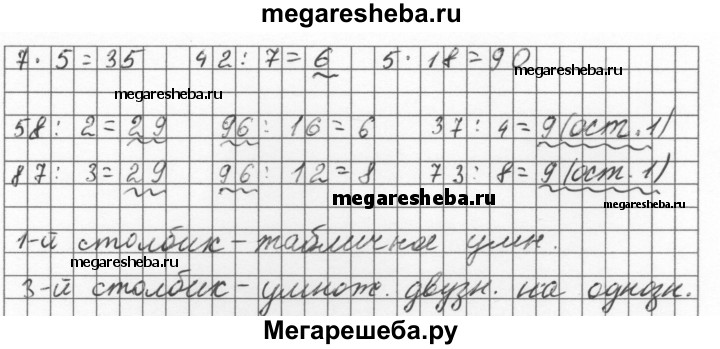 megaresheba.ru
7 · 5 = 35 42 : 7 = 6 5 · 18 = 90
megaresheba.ru
megaresheba.ru
58 : 2 = 29 96 : 16 = 6 37 : 4 = 9 (ост. 1)
87 : 3 = 29 96 : 12 = 8 73 : 8 = 9 (ост. 1)
megaresheba.ru
megaresheba.ru
1-й столбик - табличное умн.
megaresheba.ru
3-й столбик - умнож. двузн. на однозн.
Мегарешеба.ру